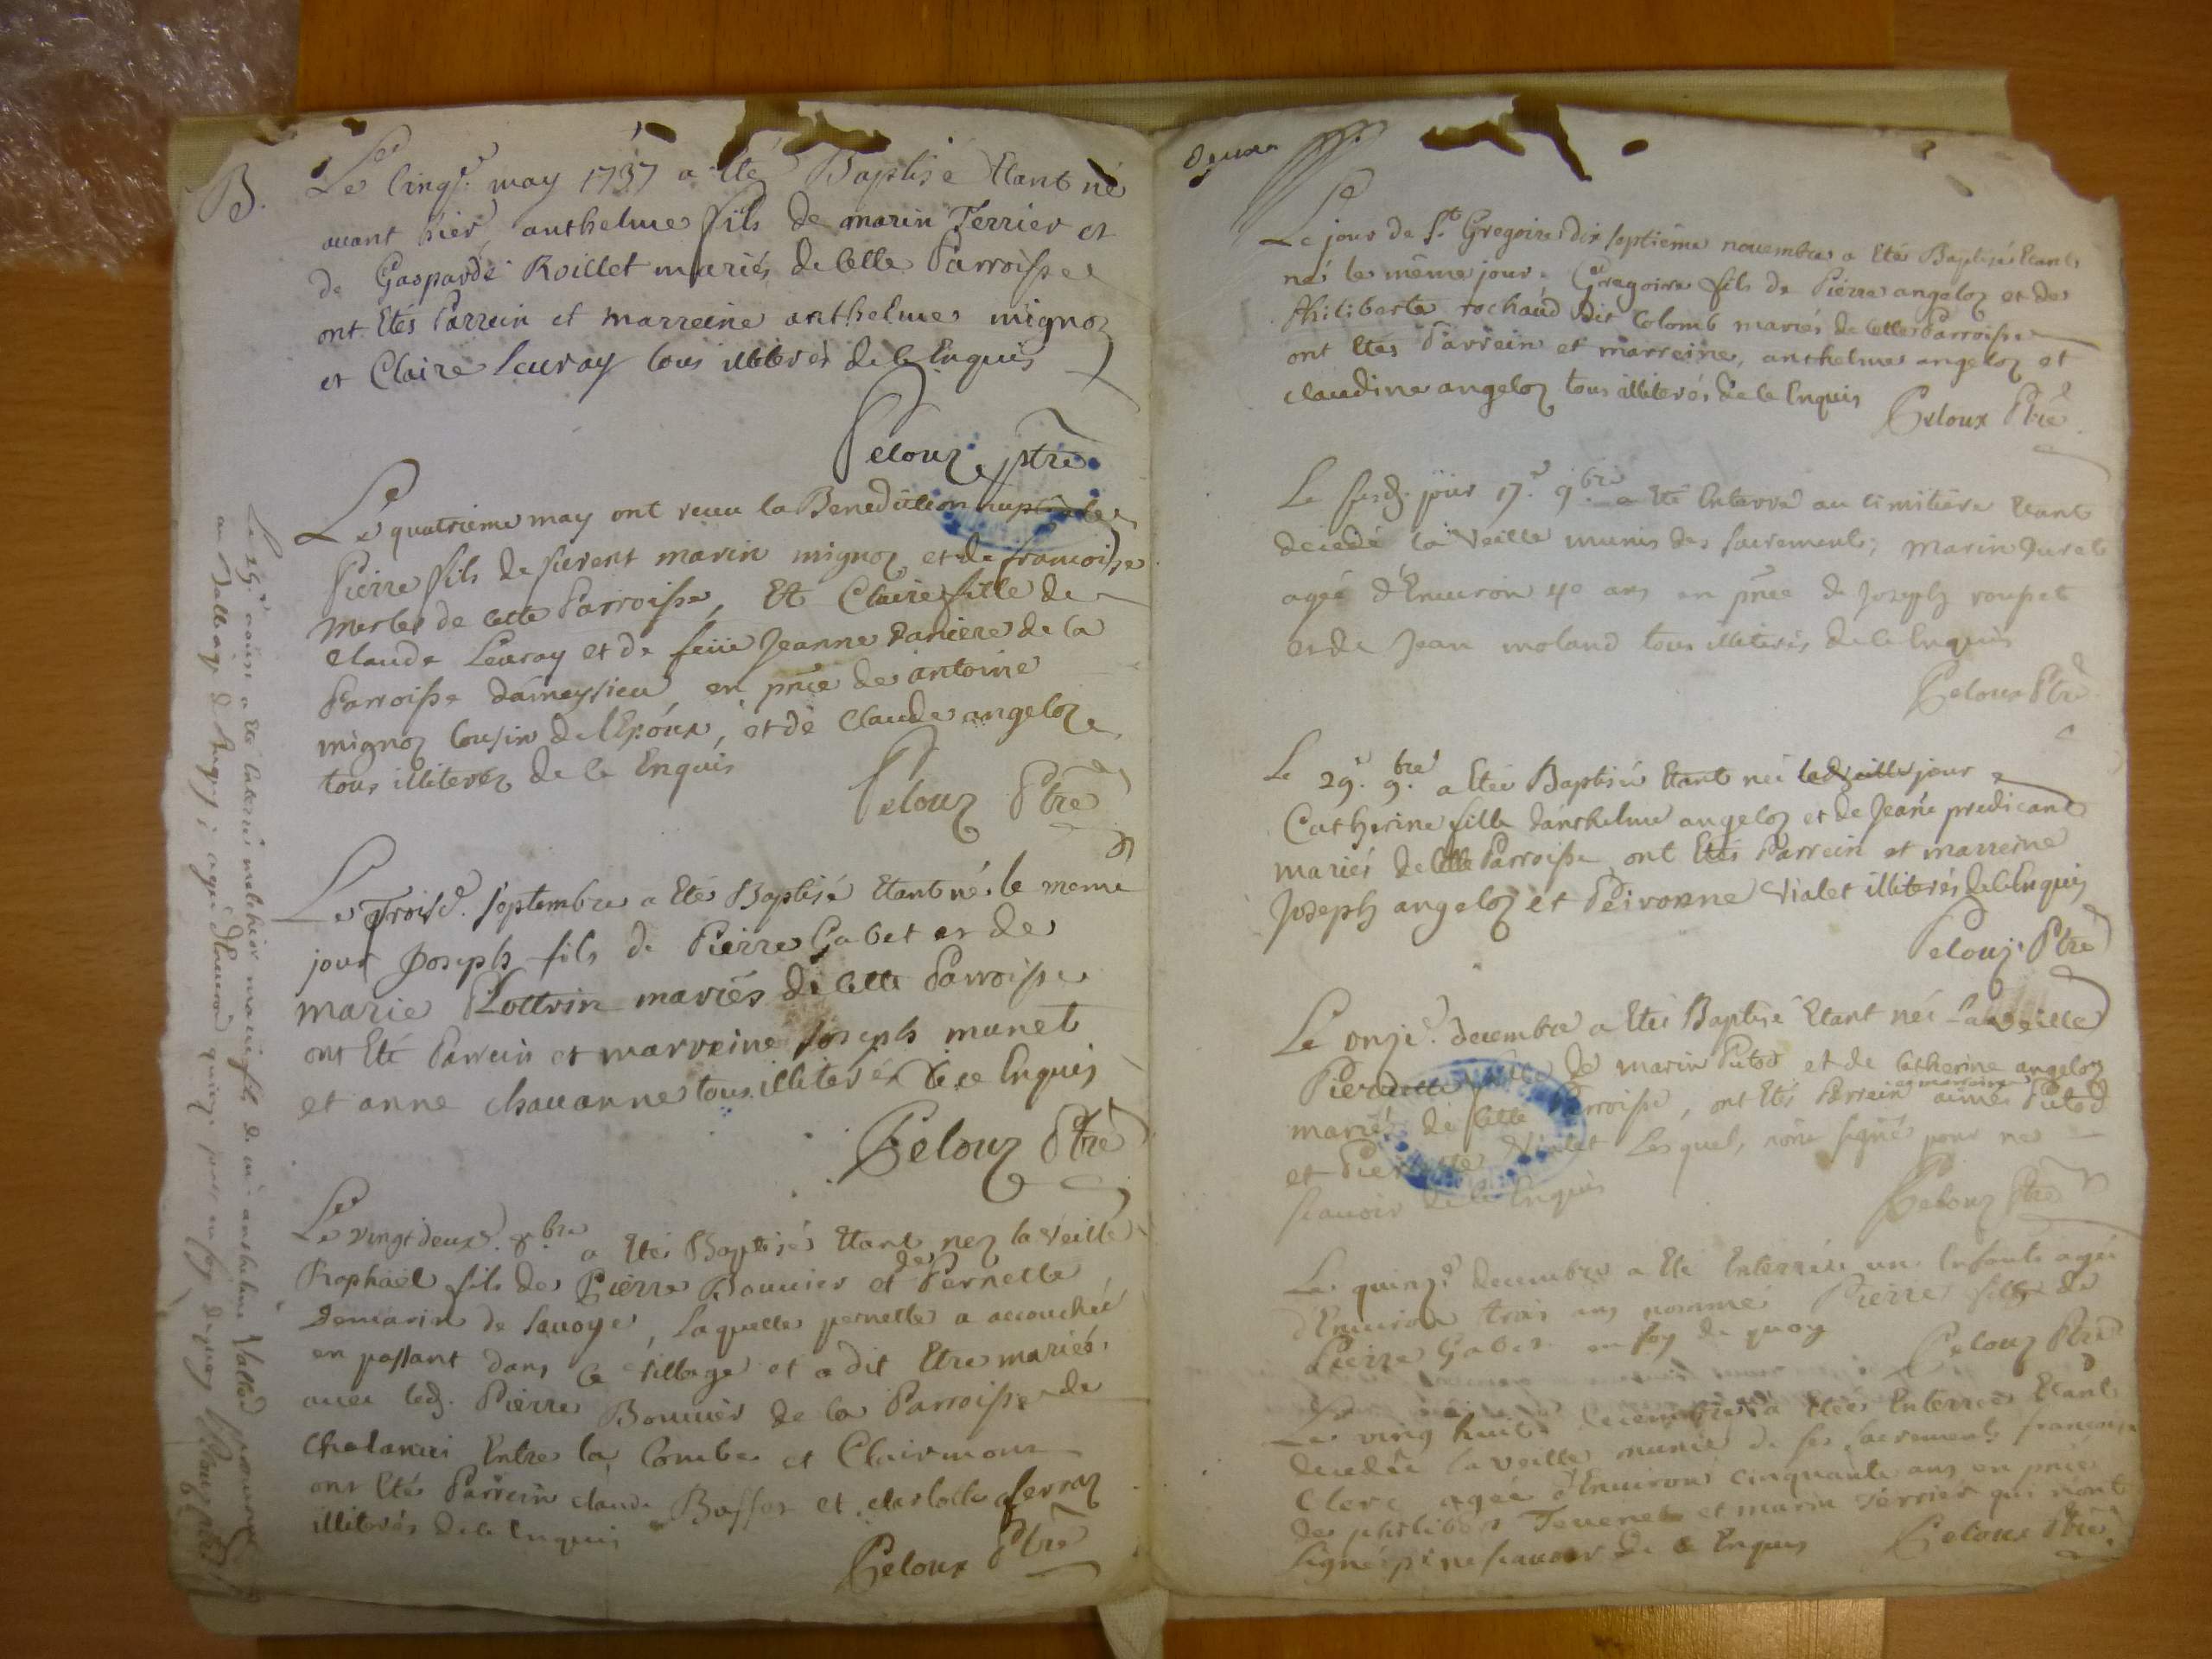 B.
Le cinqe. may 1737 a été Baptisé Etant né
auant hier, anthelme fils de marin Terrier et
de Gasparde Roillet mariés de cette Parroisse
ont Etés Parrein et marreine anthelme mignoz
et Claire Leuray tous illiterés de ce Enquis
Pelouz ptre
Le quatrieme may ont receu la Benediction nuptiale
Pierre fils de fieu marin mignoz et de francoise
merle de cette Parroisse, Et Claire fille de
Claude Leuray et de feüe Jeanne Paniere de la
Parroisse dameysieu, en pñce de antoine
mignoz Cousin de l'Epoux, et de Claude angeloz
tous illiterez de ce Enquis
Pelouz Ptre
Le Troise. septembre a Etés Baptisé Etant né le meme
jour Joseph fils de Pierre Gabet et de
marie Pottrin mariés de cette Parroisse
ont Eté Parrein et marreine Joseph munet
et anne chauanne tous illiterés de ce Enquis
Pelouz Ptre
Le vingt deuxe. 8.bre a Etés Baptisés Etant nez la veille
Raphaël fils de Pierre Bouuier et de Pernette
Demarin de sauoye, Laquelle pernette a accouchée
en passant dans ce village et a dit Etre mariés
auec led. Pierre Bouuier de la Parroisse de
Chalanui Entre la Combe et Clairmont
ont Etés Parrein claude Buffet et clarlotte ferraz
illiterés de ce Enquis
Peloux Ptre
Le 25e. aoust a Eté Enterré melchior marie fils de me. anthelme Vallod procureur
au Balliage de Bugey; agé d'Enuiron quinze jours en foy de quoy Pelouz ptre
Deuxe
Le jour de St. Gregoire dix septiéme nouembre a Etés Baptisé Etant
né le même jour. Gregoire fils de Pierre angeloz et de
Philiberte rochaud dit Colomb mariés de cette Parroisse
ont Etés Parrein et marreine, anthelme angeloz et
claudine angeloz tous illiterés de ce Enquis
Peloux Ptre
Le susd. jour 17e. 9.bre a Eté Enterré au cimitiére Etant
decedé la veille munis des sacrements; marin Juret
agée d'Enuiron 40 ans en pñce de Joseph roupet
et de Jean moland tous illiterés de ce Enquis
Peloux Ptre
Le 29e. 9.bre a Etée Baptisée Etant née led. jour
Catherine fille d'anthelme angeloz et de Jeane predicant
mariés de cette Parroisse ont Etés Parrein et marreine
Joseph angeloz et Peironne Vialet illiterés de ce Enquis
Pelouz Ptre
Le onze. decembre a Etés Baptisé Etant née La veille
Pierrette fille de marin Putod et de Catherine angeloz
mariés de cette Parroisse, ont Etés Parrein et marreine aimé Putod
et Pierrette Vialet Lesquels n'ont signé pour ne
scauoir de ce Enquis
Pelouz Ptre
Le quinze. decembre a Eté Enterrée un Enfant agée
d'Enuiron trois ans nommé Pierre fils de
Pierre Gabet en foy de quoy
Pelouz Ptre
Le ving huite. decembre a Etée Enterrée Etant
decedée la veille munie de ses sacrements francoise
Clerc agée d'Enuiron cinquante ans en pñce
de philibert Teuenet et marin Terrier qui n'ont
signés p: ne scauoir de ce Enquis
Peloux Ptre